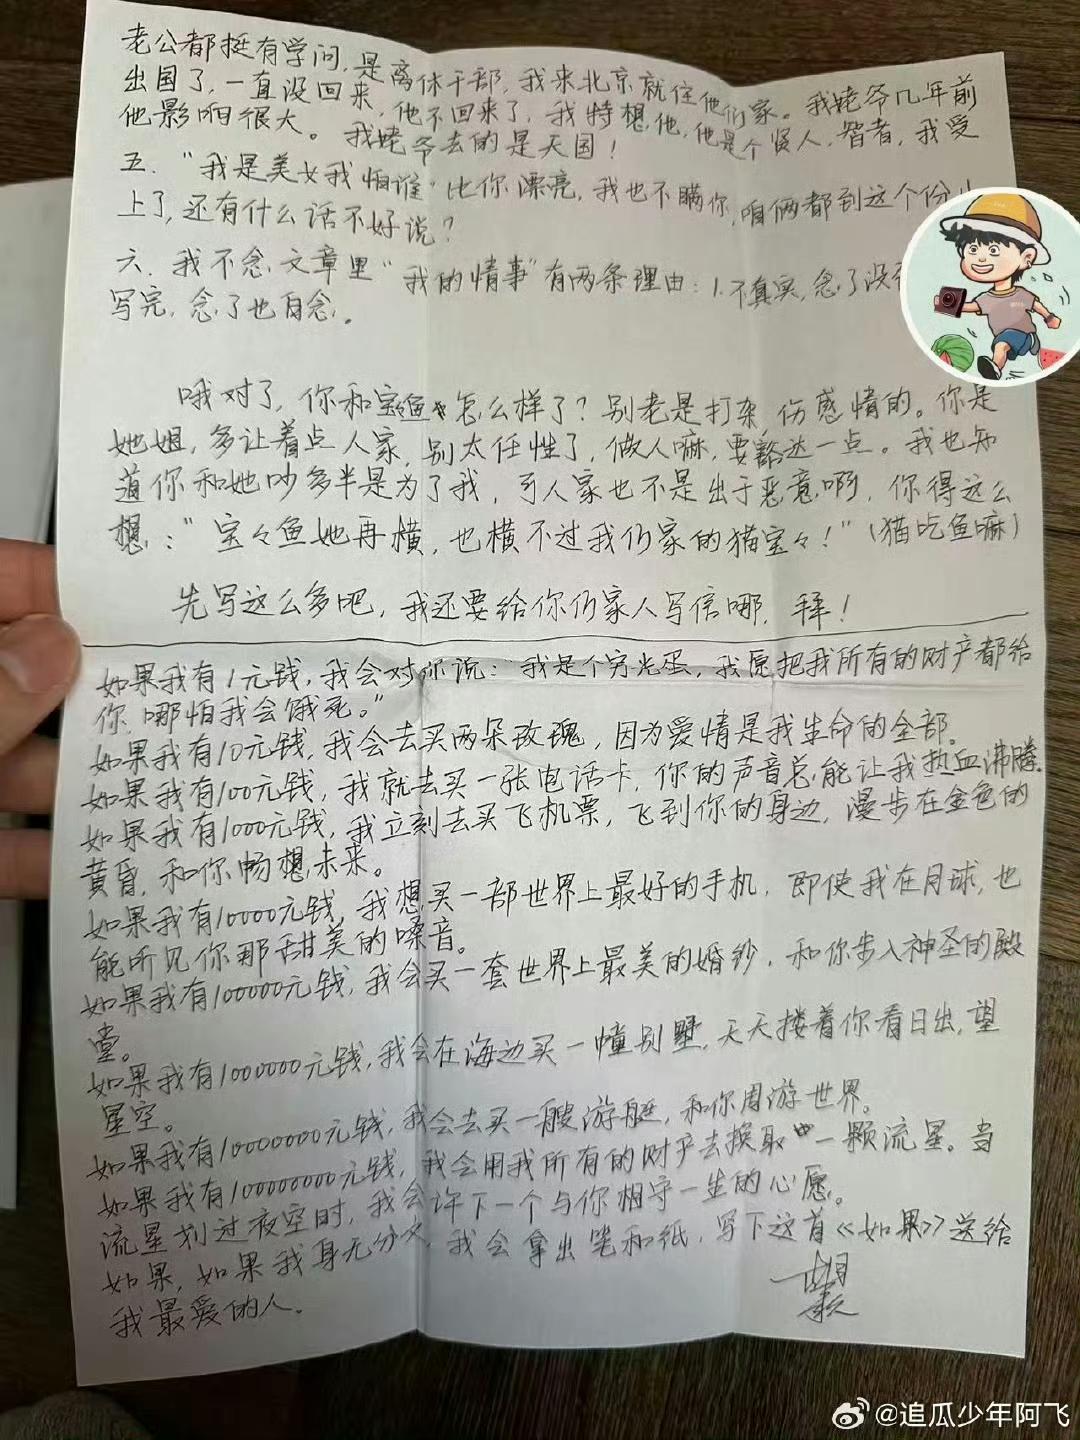 老公都挺有学问，是离休干部，我来北京就住他们家。我姥爷几年前
出国了，一直没回来，他不回来了，我特想他，他是个贤人，智者，我受
他影响很大。我姥爷去的是天国！
五．“我是美女我怕谁”比你漂亮，我也不瞒你，咱俩都到这个份
上了，还有什么话不好说？
六．我不念文章里“我的情事”有两条理由：1.不真实，念了没
写完，念了也白念。
哦对了，你和宝々鱼怎么样了？别老是打杂，伤感情的。你是
她姐，多让着点人家，别太任性了，做人嘛，要豁达一点。我也知
道你和她吵多半是为了我，可人家也不是出于恶意啊，你得这么
想：“宝々鱼她再横，也横不过我们家的猫宝々！”（猫吃鱼嘛）
先写这么多吧，我还要给你们家人写信哪，拜！
如果我有1元钱，我会对你说：“我是个穷光蛋，我愿把我所有的财产都给
你，哪怕我会饿死。”
如果我有10元钱，我会去买两朵玫瑰，因为爱情是我生命的全部。
如果我有100元钱，我就去买一张电话卡，你的声音总能让我热血沸腾。
如果我有1000元钱，我立刻去买飞机票，飞到你的身边，漫步在金色的
黄昏，和你畅想未来。
如果我有10000元钱，我想买一部世界上最好的手机，即使我在月球，也
能听见你那甜美的嗓音。
如果我有100000元钱，我会买一套世界上最美的婚纱，和你步入神圣的殿
堂。
如果我有1000000元钱，我会在海边买一幢别墅，天天搂着你看日出，望
星空。
如果我有10000000元钱，我会去买一艘游艇，和你周游世界。
如果我有100000000元钱，我会用我所有的财产去换取一颗流星。当
流星划过夜空时，我会许下一个与你相守一生的心愿。
如果，如果我身无分文，我会拿出笔和纸，写下这首《如果》送给
我最爱的人。
@追瓜少年阿飞